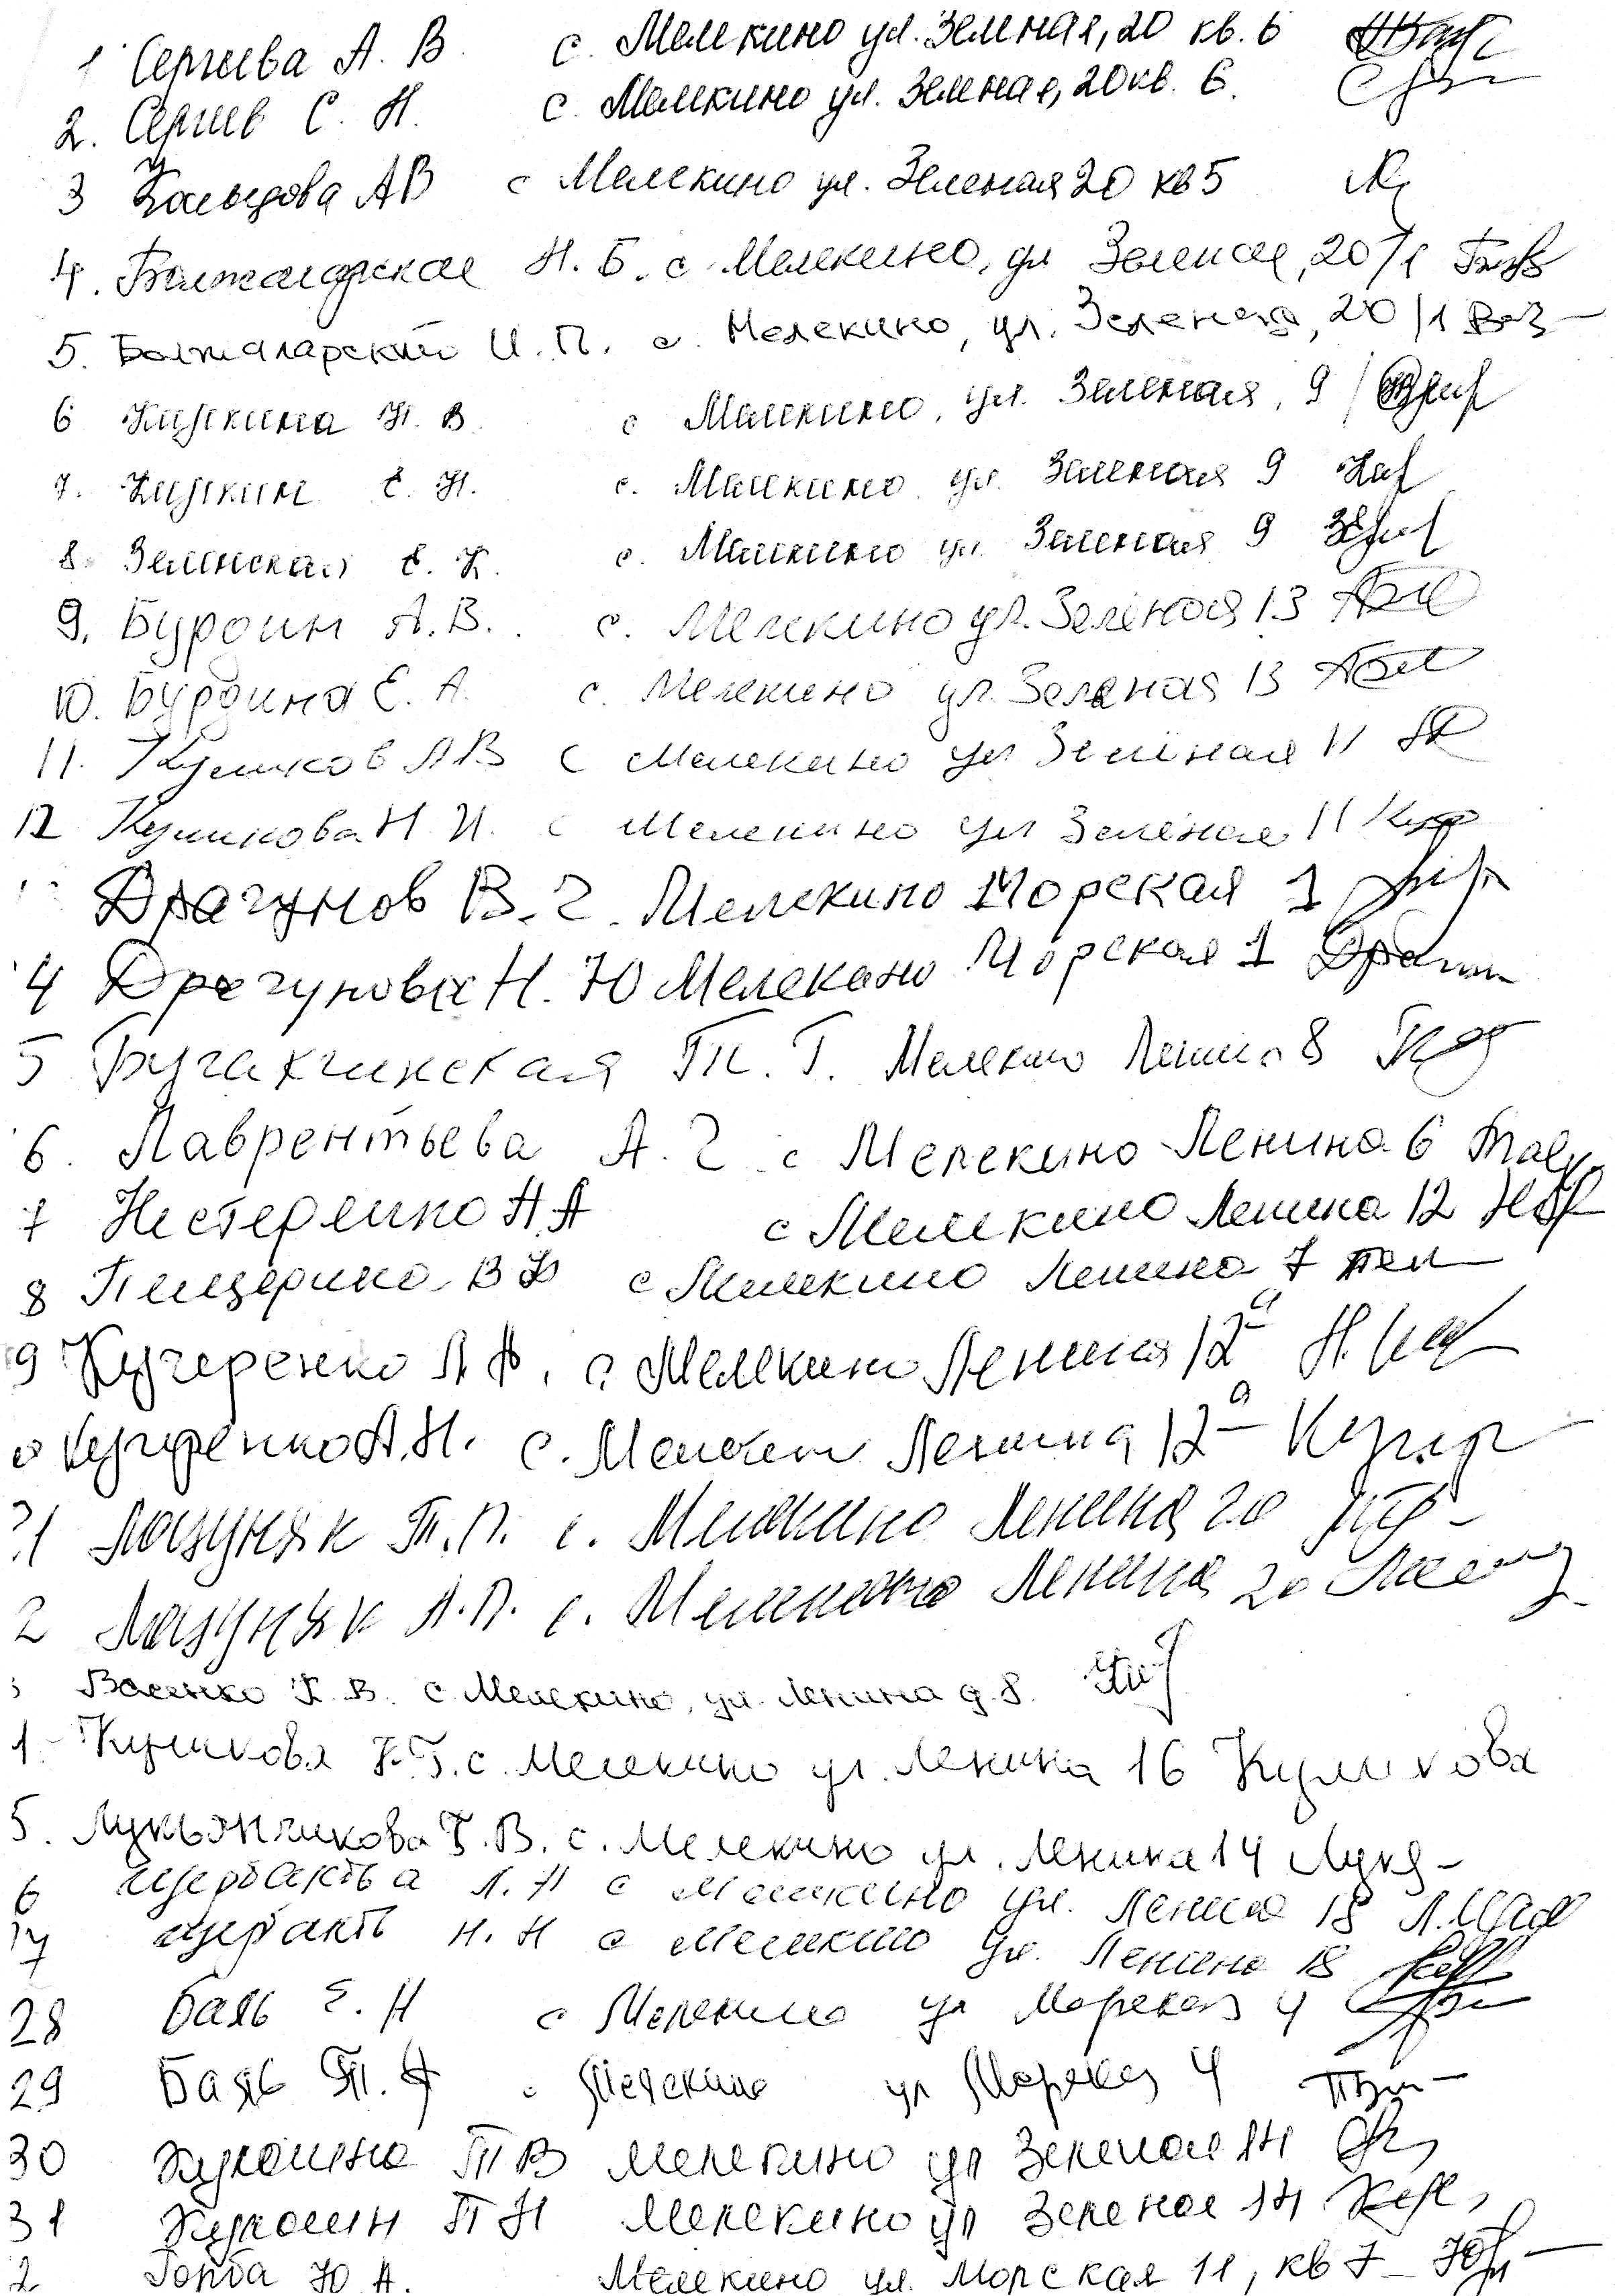 1 Сергиева А. В с. Мелекино ул. Зеленая, 20 кв. 6
2. Сергиев С. Н. с. Мелекино ул. Зеленая, 20 кв. 6.
3 Кольцова АВ с Мелекино ул. Зеленая 20 кв 5
4. Н. Б. с Мелекино, ул Зеленая, 20/1
5. Болталарский И. П. с. Мелекино, ул. Зеленая, 20/1
6 Н. В. с Мелекино, ул. Зеленая, 9
7. Е. Н. с. Мелекино ул. Зеленая 9
8. Зелинская Е. К. с. Мелекино ул. Зеленая 9
9. Бурдин А. В. с. Мелекино ул. Зеленая 13
10. Бурдина Е. А. с. Мелекино ул. Зеленая 13
11. Куликов А В с Мелекино ул Зелёная 11
12 Куликова Н. И. с Мелекино ул Зелёная 11
Драгунов В. Г. Мелекино Морская 1
4 Драгунова Н. Ю Мелекино Морская 1
5 Т. Г. Мелекино Ленина 8
6. Лаврентьева А. Г. с Мелекино Ленина 6
7 Нестеренко Н А с Мелекино Ленина 12
8 Пещерина В Ф с Мелекино Ленина 7
9 Кучеренко А Ф. с. Мелекино Ленина 12а
0 Кучеренко А. Н. с. Мелекино Ленина 12а
21 Лазуняк Т. П. с. Мелекино Ленина 20
2 Лазуняк А. П. с. Мелекино Ленина 20
Васенко Т. В. с. Мелекино, ул. Ленина д. 8.
Куликова Т. с. Мелекино ул. Ленина 16 Куликова
5. Лукьянчикова Т. В. с. Мелекино ул. Ленина 14
6 Щербакова Л. Н с Мелекино ул. Ленина 18
17 Н. Н с Мелекино ул. Ленина 18
28 Баль Е. Н с Мелекино ул Морская 4
29 Баль Т. А с Мелекино ул Морская 4
30 Т В Мелекино ул Зеленая 14
31 П Н Мелекино ул Зеленая 14
2 Горба Ю А. Мелекино ул. Морская 11, кв 7